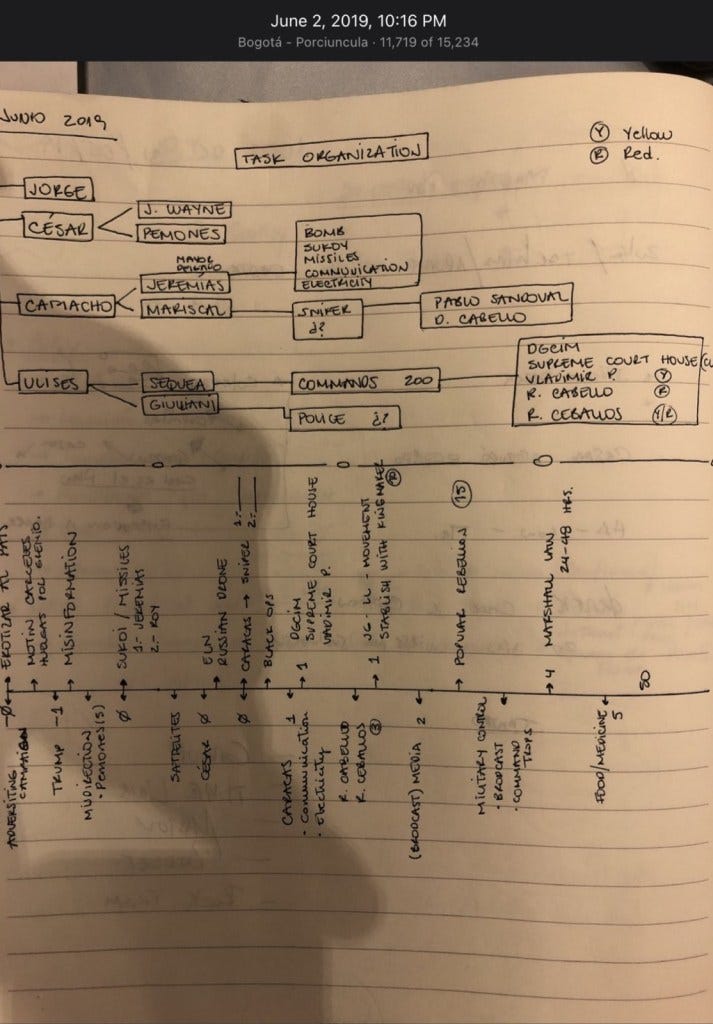 June 2, 2019, 10:16 PM
Bogotá - Porciuncula · 11,719 of 15,234
JUNIO 2019
TASK ORGANIZATION
Ⓨ Yellow
Ⓡ Red.
JORGE
CÉSAR
J. WAYNE
PEMONES
MAYOR
JEREMÍAS
CAMACHO
MARISCAL
BOMB
SUKOY
MISSILES
COMMUNICATION
ELECTRICITY
SNIPER
¿?
PABLO SANDOVAL
D. CABELLO
ULISES
SEQUEA
GIULIANI
COMMANDS 200
POLICE ¿?
DGCIM
SUPREME COURT HOUSE
VLADIMIR P. Ⓨ
R. CABELLO Ⓡ
R. CEBALLOS Y/R
EROTIZAR AL PAÍS
MOTIN CARCELES
HUELGAS POR GREMIO.
MISINFORMATION
SUKOI / MISSILES
1.- JEREMIAS
2.- ROY
ELN
RUSSIAN DRONE
CARACAS → SNIPER 1.-
2.-
BLACK OPS
1 DGCIM
SUPREME COURT HOUSE
VLADIMIR P.
1 JG - LL - MOVEMENT
STABLISH WITH KINGMAKER
POPULAR REBELLION 15
4 MARSHALL LAW
24-48 HRS.
80
ADVERSITING
CAMPAIGN
TRUMP -1
MIUDIRECTION
· PEMONES (15)
Ø
SATTELITES
CÉSAR Ø
Ø
CARACAS 1
· Communication
· Electricity
R. CABELLO
R. CEBALLOS 3
(BRODCAST) MEDIA 2
MILITARY CONTROL
· BRODCAST
· COMMAND
TROPS
FOOD/MEDICINE 5